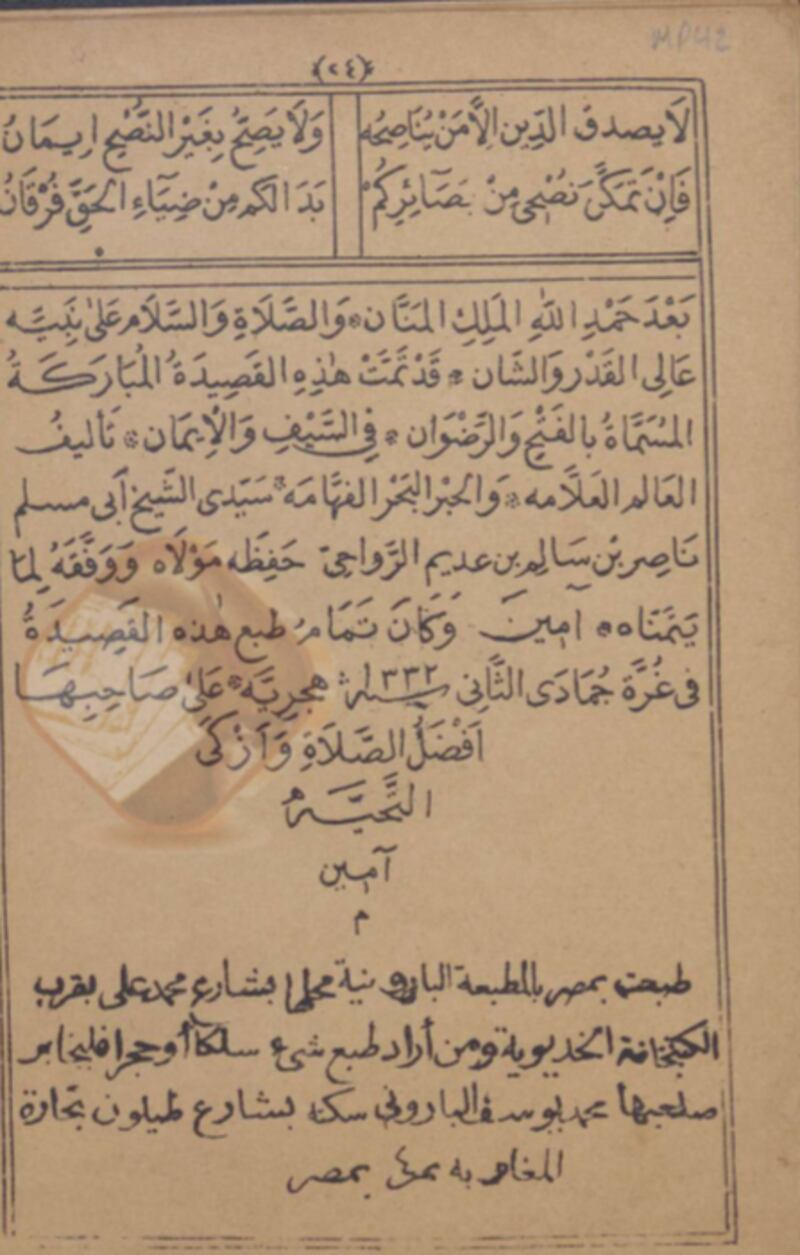 MP42
﴿٢٤﴾
لَا يصدق الدِّين الَّا مَنْ يُنَاصِحُه وَلَا يَصِحُّ بِغَيْرِ النُّصْحِ اِيمَانُ
فَاِنْ تَمَكَّنَ نُصْحِى مِنْ بَصَآئِرِكُمْ بَدَا لكم مِنْ ضِيَآءِ الحَقِّ فُرْقَانُ
بَعْدَ حَمْدِ اللهِ المَلِكِ المَنَّان * وَالصَّلَاةِ وَالسَّلَام عَلىٰ نَبِيِّه
عَالِى القَدْر وَالشَان * قَدْ تَمَّتْ هٰذِهِ القَصِيدَةُ المُبَارَكَةُ
المُسَمَّاةُ بالفَتْحِ وَالرِّضْوَان * فى السَّيْفِ وَالْاِيمَان * تَأليفُ
العَالم العَلَّامه * وَالحَبْر البَحْر الفهَّامَه * سَيِّدى الشَّيخ أَبى مسلم
نَاصِر بْن سَالِم بن عديم الرَّواحِىّ حَفِظَه مَوْلَاه وَوَفَّقَهُ لِمَا
يَتَمَنَّاه * آمِينَ وَكَانَ تَمَامُ طبع هٰذه القَصِيدَةُ
فى غُرَّة جُمَادَى الثَّانِى سنة ١٣٣٢ هجرِيَّه * عَلىٰ صَاحِبِهَا
اَفْضَلُ الصَّلَاةِ وَاَزْكَى
التَّحِيَّه
آمِين
م
طبعت بمصر بالمطبعة البارونية محلها بشارع محمد على بقرب
الكتبخانة الخديوية ومن أراد طبع شىء سلكا أو حجرا فليخابر
صاحبها محمد يوسف البارونى سكنه بشارع طيلون بحارة
المغاربه نمرة ٤ بمصر